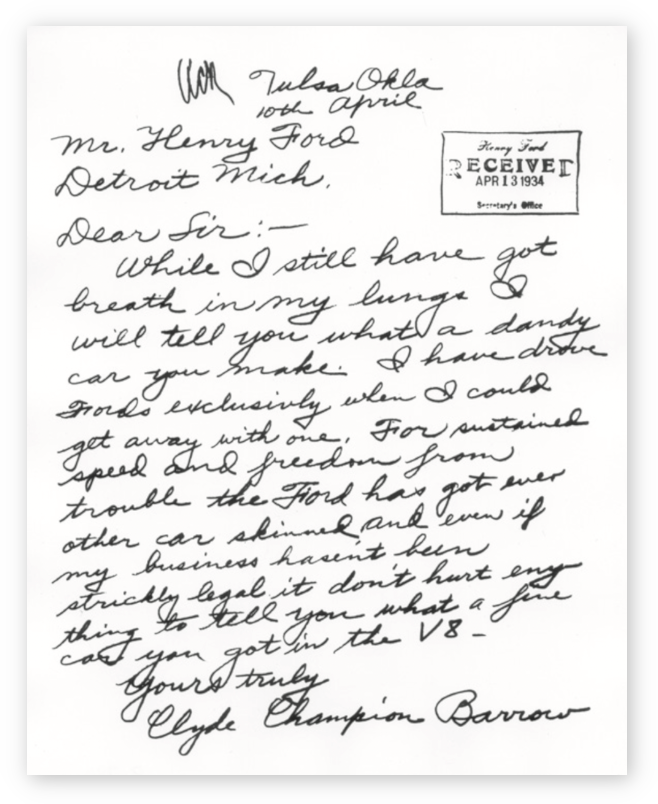 Tulsa Okla
10th April
Mr. Henry Ford
Detroit Mich.
Henry Ford
RECEIVED
APR 13 1934
Secretary's Office
Dear Sir:—
While I still have got
breath in my lungs I
will tell you what a dandy
car you make. I have drove
Fords exclusivly when I could
get away with one. For sustained
speed and freedom from
trouble the Ford has got ever
other car skinned, and even if
my business hasen't been
strickly legal it don't hurt eny
thing to tell you what a fine
car you got in the V8 —
Yours truly
Clyde Champion Barrow